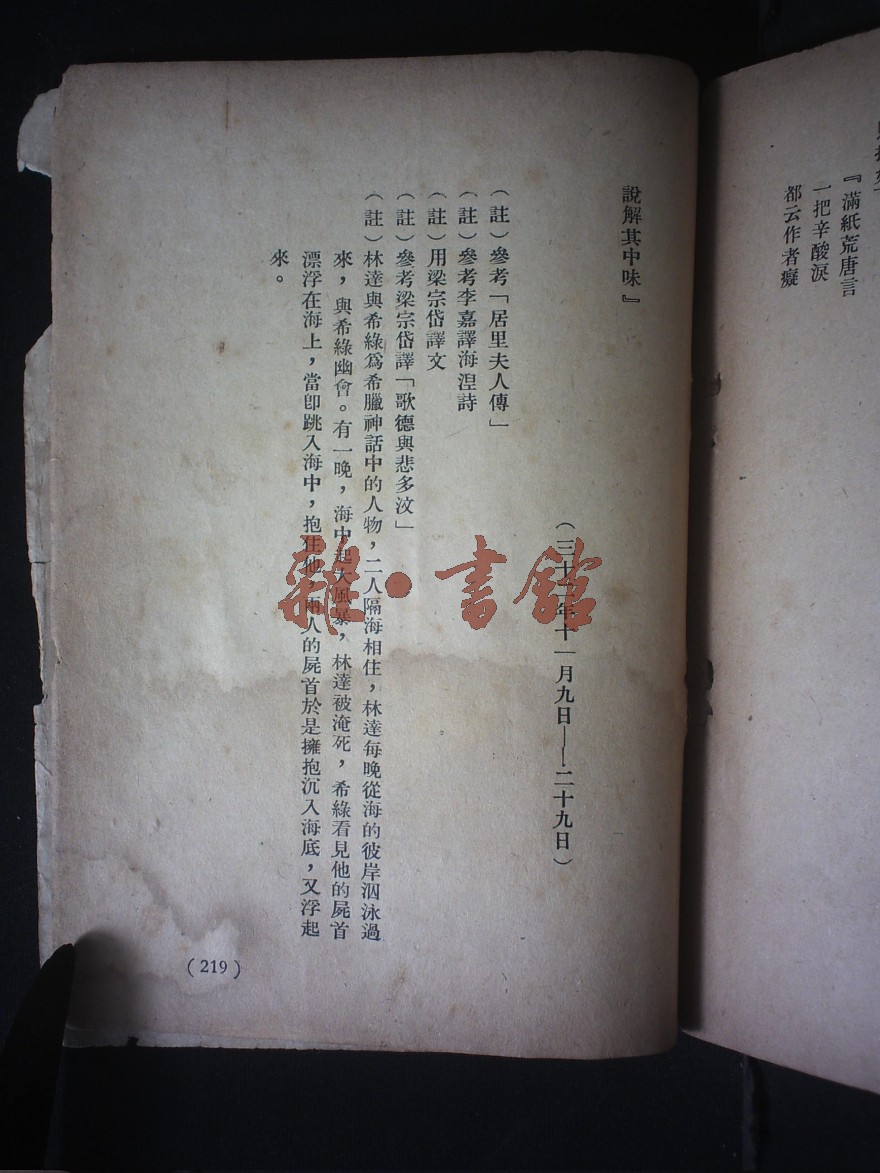 『滿紙荒唐言
一把辛酸淚
都云作者癡
說解其中味』
（三十一年十一月九日——二十九日）
（註）參考「居里夫人傳」
（註）參考李嘉譯海涅詩
（註）用梁宗岱譯文
（註）參考梁宗岱譯「歌德與悲多汶」
（註）林達與希綠爲希臘神話中的人物，二人隔海相住，林達每晚從海的彼岸泅泳過
來，與希綠幽會。有一晚，海中起大風暴，林達被淹死，希綠看見他的屍首
漂浮在海上，當卽跳入海中，抱住他，兩人的屍首於是擁抱沉入海底，又浮起
來。
（219）
雜·書館